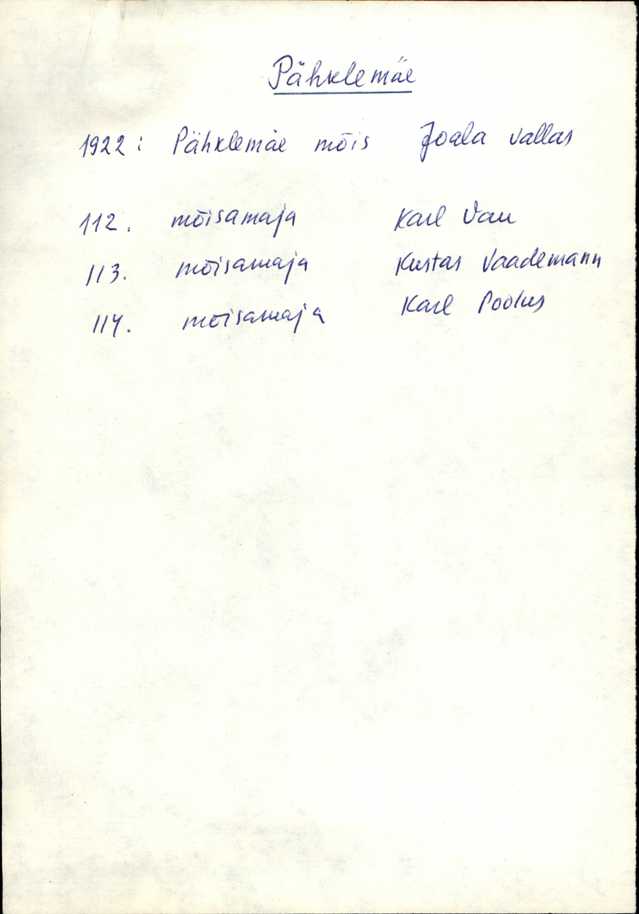 Pähklemäe
1922: Pähklemäe mõis Joala vallas
112. mõisamaja Karl Vau
113. mõisamaja Kustas Vaademann
114. mõisamaja Karl Poolus